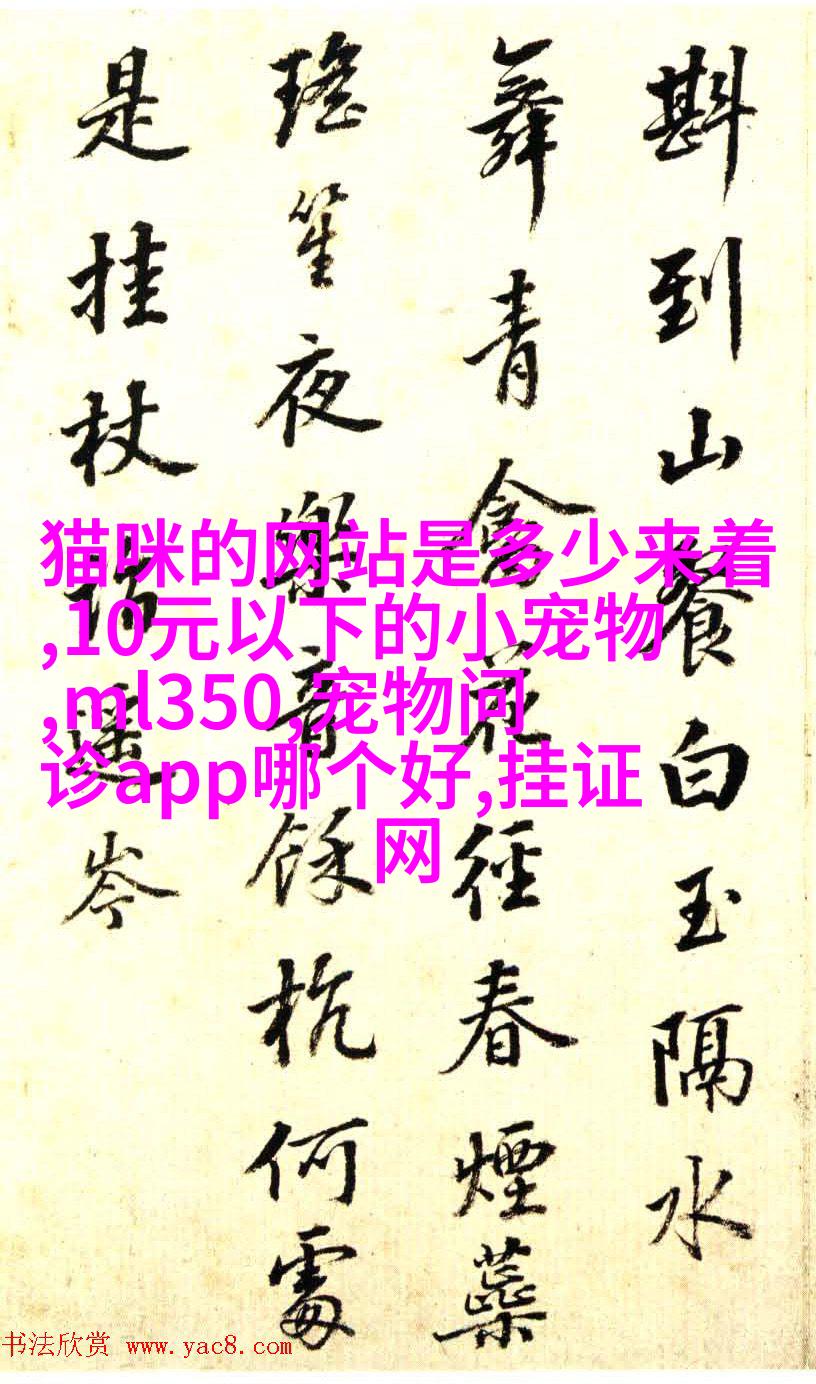 斟到山餐白玉隔水
舞青禽花徑春煙
瑤笙夜樂音餘杭何處
是挂杖遥岑
猫咪的网站是多少来着
,10元以下的小宠物
,ml350,宠物问
诊app哪个好,挂证
网
书法欣赏 www.yac8.com